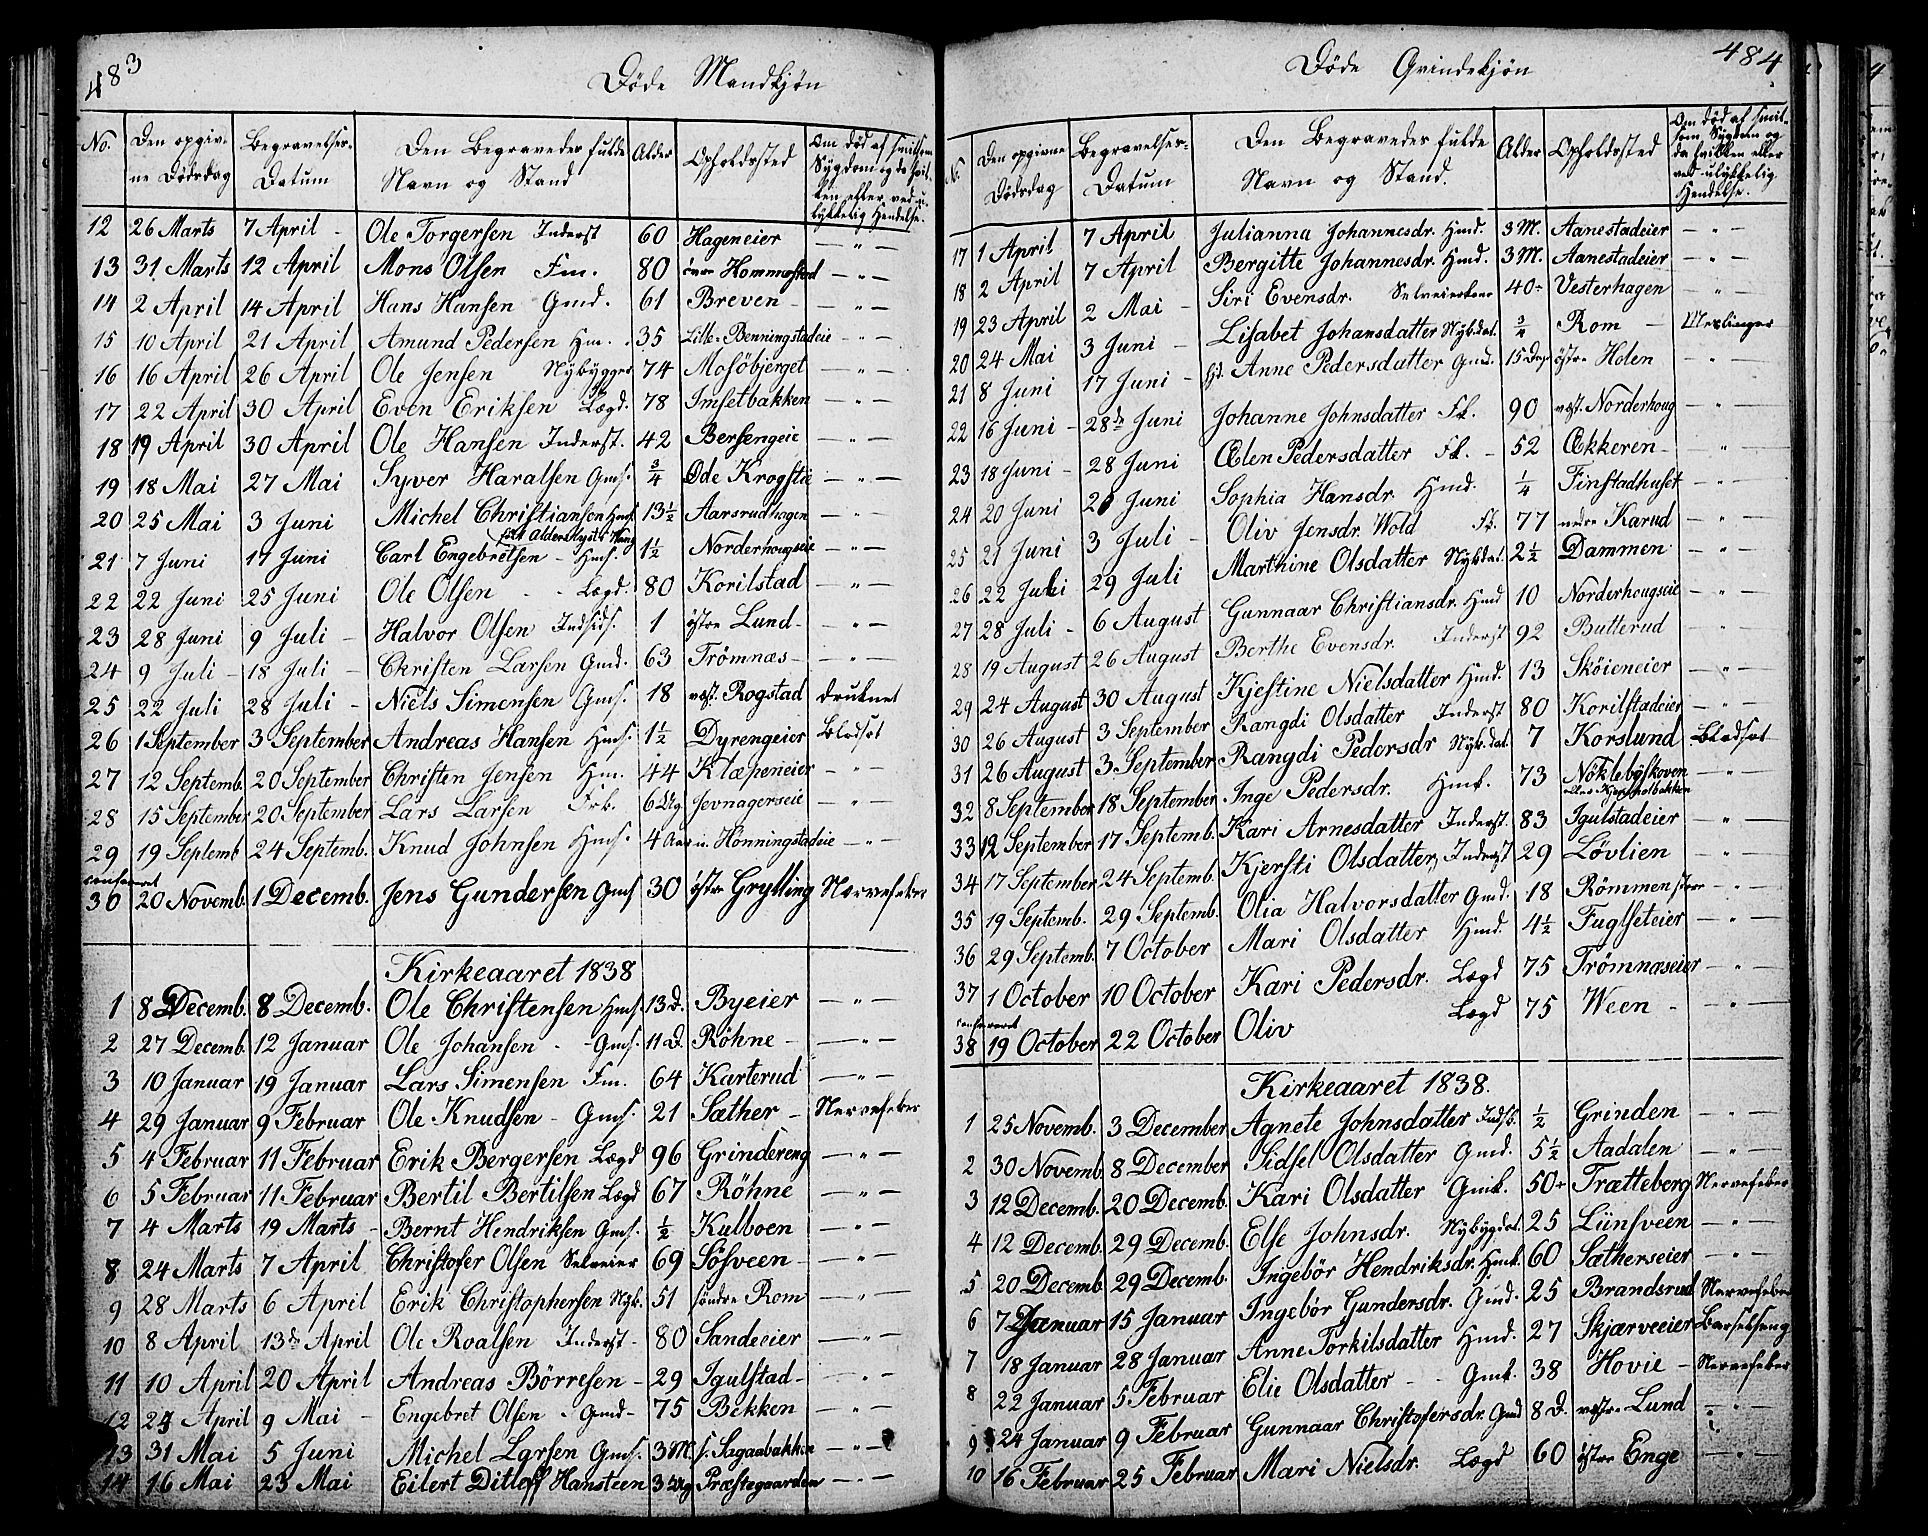 483
Døde Mandkjøn
No. Den opgivne Dødsdag Begravelses-Datum Den Begravedes fulde Navn og Stand Alder Opholdssted Om død af smitsom Sygdom og da hvilken eller ved ulykkelig Hendelse.
12 26 Marts 7 April - Ole Torgersen Inderst 60 Hageneier — " —
13 31 Marts 12 April Mons Olsen Fm. 80 övre Hommerstad — " —
14 2 April 14 April Hans Hansen Gmd. 61 Breven - — " —
15 10 April 21 April Amund Pedersen Hm. 35 Lille-Benningstadeie — " —
16 16 April 26 April Ole Jensen Nybygger 74 Mosöbjerget — " —
17 22 April 30 April Even Eriksen Lægd. 78 Imsetbakken — " —
18 19 April 30 April Ole Hansen Inderst. 42 Bersengeie — " —
19 18 Mai 27 Mai Syver Haralsen Gms. 3/4 Øde Krogstie — " —
20 25 Mai 3 Juni Michel Christiansen Hms. 13 1/2 Aarsrudhagen — " —
21 7 Juni 17 Juni Carl Engebretsen - Hms. 1 1/2 Norderhougseie — " —
22 22 Juni 25 Juni Ole Olsen - - Lægd. 80 Korilstad — " —
23 28 Juni 9 Juli - Halvor Olsen Indsids. 1 östre Lund - — " —
24 9 Juli - 18 Juli - Christen Larsen Gmd. 63 Trömnæs - — " —
25 22 Juli 28 Juli - Niels Simensen Gms. 18 vest. Rogstad druknet
26 1 September 3 September Andreas Hansen Hms. 1 1/2 Dyrengeier Blodsot
27 12 Septemb. 20 September Christen Jensen Hm. 44 Klæpeneier — " —
28 15 September 20 September Lars Larsen Frk. 6 Ug. Jevnagerseie — " —
29 19 Septemb 24 Septemb. Knud Johnsen Hms. 4 Aar n. Hönningstadeie — " —
confereret
30 20 Novemb. 1 Decemb. Jens Gundersen Gms 30 östre Grytting Nervefeber
Kirkeaaret 1838
1 8 Decemb. 8 Decemb. Ole Christensen Hms. 13 D. Byeier — " —
2 27 Decemb. 12 Januar Ole Johansen - - Gms. 11 D. Röhne - — " —
3 10 Januar 19 Januar Lars Simensen Fm. 64 Karterud — " —
4 29 Januar 9 Februar Ole Knudsen - Gms. 21 Sæther - Nervefeber
5 4 Februar 11 Februar Erik Bergersen Lægd 96 Grindereng — " —
6 5 Februar 11 Februar Bertil Bertilsen Lægd 67 Röhne — " —
7 4 Marts 19 Marts - Bernt Hendriksen Gms. 1/2 Kulboen — " —
8 24 Marts 7 April Christofer Olsen Selveier 69 Sösveen — " —
9 28 Marts 6 April Erik Christophersen Nyb. 51 söndre Rom — " —
10 8 April 13de April Ole Roalsen Inderst - 80 Sandeeier — " —
11 10 April 20 April Andreas Börresen - 29 Igulstad - — " —
12 23 April 9 Mai - Engebret Olsen - Gmd - 75 Bekken — " —
13 31 Mai 5 Juni Michel Larsen Gms. 3 M. s. Sagaabakken — " —
14 16 Mai 23 Mai Eilert Ditloff Hanstzen 3 Ug Præstegaarden — " —
484
Døde Qvindekjøn
No. Den opgivne Dødsdag Begravelses-Datum Den Begravedes fulde Navn og Stand. Alder Opholdssted Om død af smitsom Sygdom og da hvilken eller ved ulykkelig Hendelse.
17 1 April 7 April Julianna Johannesdr. Hmd. 3 M. Aanestadeier — " —
18 2 April 7 April Bergitte Johannesdr. Hmd. 3 M. Aanestadeier — " —
19 23 April 2 Mai - Siri Evensdr. Selveierkone 40 - Vesterhagen — " —
20 24 Mai 3 Juni - Lisabet Johansdatter Nyb.dat. 3/4 Rom - Meslinger
21 8 Juni 17 Juni - Anne Pedersdatter Gmd. 15 Dage östre Holen — " —
22 16 Juni - 28de Juni Johanne Johnsdatter Fk. 90 vest. Norderhoug — " —
23 18 Juni - 28 Juni Œlen Pedersdatter Fk. - 52 Œkkeren - — " —
24 20 Juni 28 Juni Sophia Hansdr. Hmd. 1/4 Finstadhuset — " —
25 21 Juni 3 Juli - Oliv Jensdr. Wold Fk. 77 nedre Karud — " —
26 22 Juli 29 Juli Marthine Olsdatter Nyb.dat. 2 1/2 Dammen — " —
27 28 Juli - 6 August Gunnaar Christiansdr. Hmd 10 Norderhougseie — " —
28 19 August 26 August Berthe Evensdr. Inderst 92 Butterud — " —
29 24 August 30 August Kjestine Nielsdatter Hmd. 13 Sköieneier — " —
30 26 August 3 September Rangdi Olsdatter Inderst 80 Korilstadeier — " —
31 26 August 3 September Rangdi Pedersdr Nyb.dat. 7 Korslund Blodsot
32 8 September 18 September Inge Pedersdr. Hmk. 73 Nöklebyskoven — " —
33 12 September 17 Septemb. Kari Arnesdatter Inderst. 83 Igulstadeier — " —
34 17 September 24 Septemb. Kjersti Olsdatter, Inderst 29 Lövlien — " —
35 19 Septemb. 29 Septemb. Olia Halvorsdatter Gmd. 18 Römmen store — " —
36 29 Septemb. 7 October Mari Olsdatter Hmd. 4 1/2 Fuglseteier — " —
37 1 October 10 October Kari Pedersdr. Lægd 75 Trömnæseier — " —
confereret
38 19 October 22 October Oliv Lægd 75 Ween - — " —
Kirkeaaret 1838.
1 25 Novemb. 3 December Agnete Johnsdatter Inds. 1/2 Grinden — " —
2 30 Novemb 8 December Sidsel Olsdatter Gmd. 5 1/2 Aadalen — " —
3 12 Decemb. 20 Decemb. Kari Olsdatter Gmk. 50 Trætteberg Nervefeber
4 12 Decemb. 29 Decemb. Else Johnsdr. Nybygdat. 25 Lünsveen — " —
5 20 Decemb 29 Decemb. Ingebör Hendriksdr. Hmk. 60 Sætherseier — " —
6 7 Januar 15 Januar Ingebör Gundersdr. Gmd. 25 Brandsrud Nervefeber
7 18 Januar 28 Januar Anne Torkilsdatter Hmd. 27 Skjærveeier Barselseng
8 22 Januar 5 Februar Elie Olsdatter - - Gmk. 38 Hovie - Nervefeber
9 24 Januar 9 Februar Gunnaar Christofersdr. Gmd 8 D. vestre Lund
10 16 Februar 25 Februar Mari Nielsdr. Lægd 60 östre Enge — " —